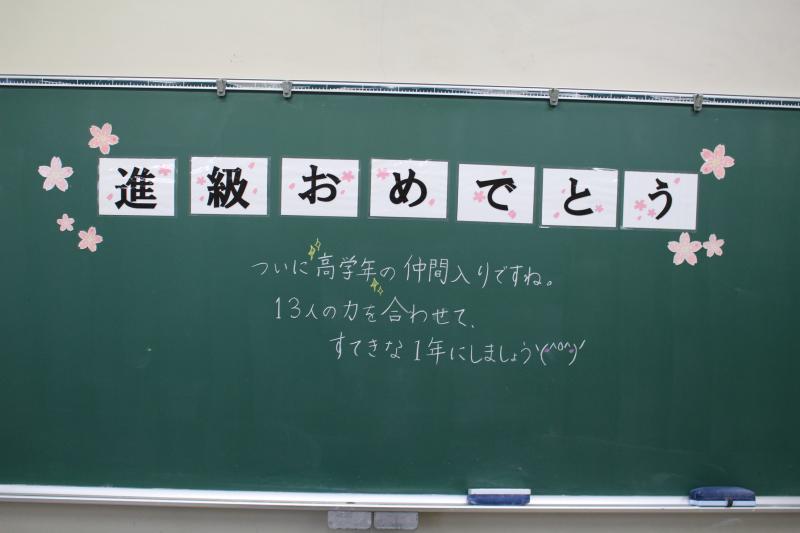 進級おめでとう
ついに高学年の仲間入りですね。
13人の力を合わせて、
すてきな1年にしましょう\(^o^)/